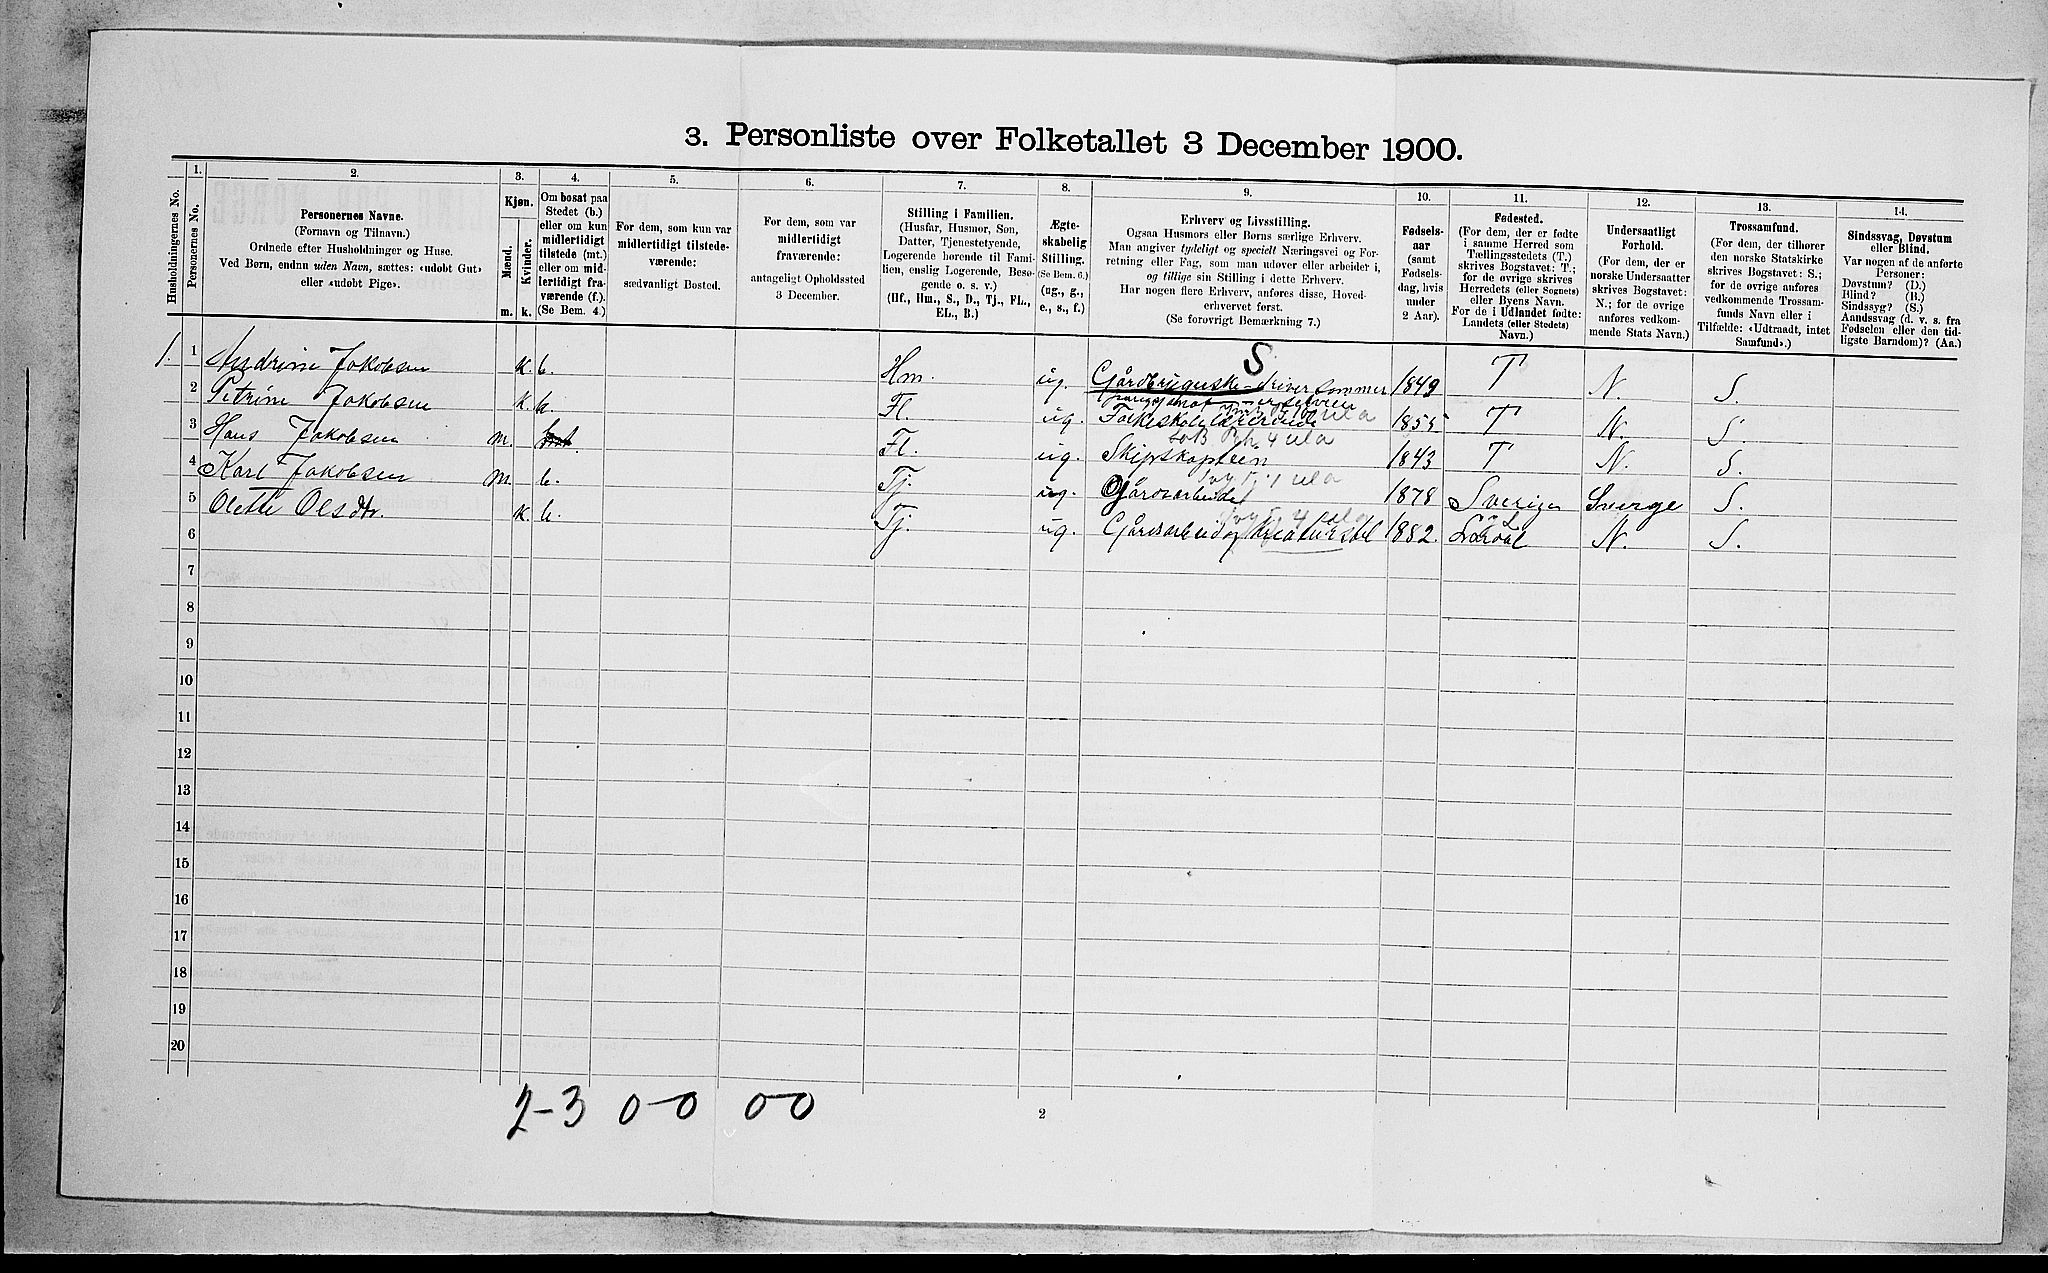 3. Personliste over Folketallet 3 December 1900.
Husholdningernes No.
1.
Personernes No.
2.
Personernes Navne.
(Fornavn og Tilnavn.)
Ordnede efter Husholdninger og Huse.
Ved Børn, endnu uden Navn, sættes: «udøbt Gut»
eller «udøbt Pige».
3.
Kjøn.
Mænd.
Kvinder.
m.
k.
4.
Om bosat paa
Stedet (b.)
eller om kun
midlertidigt
tilstede (mt.)
eller om mid-
lertidigt fra-
værende (f.).
(Se Bem. 4.)
5.
For dem, som kun var
midlertidigt tilstede-
værende:
sædvanligt Bosted.
6.
For dem, som var
midlertidigt
fraværende:
antageligt Opholdssted
3 December.
7.
Stilling i Familien.
(Husfar, Husmor, Søn,
Datter, Tjenestetyende,
Logerende hørende til Fami-
lien, enslig Logerende, Besø-
gende o. s. v.)
(Hf., Hm., S., D., Tj., FL.,
EL., B.)
8.
Ægte-
skabelig
Stilling.
(Se Bem. 6.)
(ug., g.,
e., s., f.)
9.
Erhverv og Livsstilling.
Ogsaa Husmors eller Børns særlige Erhverv.
Man angiver tydeligt og specielt Næringsvei og For-
retning eller Fag, som man udøver eller arbeider i,
og tillige sin Stilling i dette Erhverv.
Har nogen flere Erhverv, anføres disse, Hoved-
erhvervet først.
(Se forøvrigt Bemærkning 7.)
10.
Fødsels-
aar
(samt
Fødsels-
dag, hvis
under
2 Aar).
11.
Fødested.
(For dem, der er fødte
i samme Herred som
Tællingsstedets (T.)
skrives Bogstavet: T.;
for de øvrige skrives
Herredets (eller Sognets)
eller Byens Navn.
For de i Udlandet fødte:
Landets (eller Stedets)
Navn.)
12.
Undersaatligt
Forhold.
(For dem, der er
norske Undersaatter
skrives Bogstavet:
N.; for de øvrige
anføres vedkom-
mende Stats Navn.)
13.
Trossamfund.
(For dem, der tilhører
den norske Statskirke
skrives Bogstavet: S.;
for de øvrige anføres
vedkommende Trossam-
funds Navn eller i
Tilfælde: «Udtraadt, intet
Samfund».)
14.
Sindssvag, Døvstum
eller Blind.
Var nogen af de anførte
Personer:
Døvstum? (D.)
Blind? (B.)
Sindssyg? (S.)
Aandssvag (d. v. s. fra
Fødselen eller den tid-
ligste Barndom)? (Aa.)
S
1. 1 Andrine Jakobsen k. b. Hm. ug. Gårdbrugerske driver sommer 1849 T N. S.
2 Petrine Jakobsen k. b. Fl. ug. Folkeskolelærerinde 1855 T N. S.
3 Hans Jakobsen m. Fl. ug. Skipskaptein 1843 T N. S.
4 Karl Jakobsen m. b. Tj. ug. Gårdsarbeide 1878 Sverige Sverge S.
5 Olette Olsdtr. k. b. Tj. ug. Gårdsarbeid og kreaturstel 1882. Lårdal N. S.
6
7
8
9
10
11
12
13
14
15
16
17
18
19
20
2-3 0-0 0-0
2